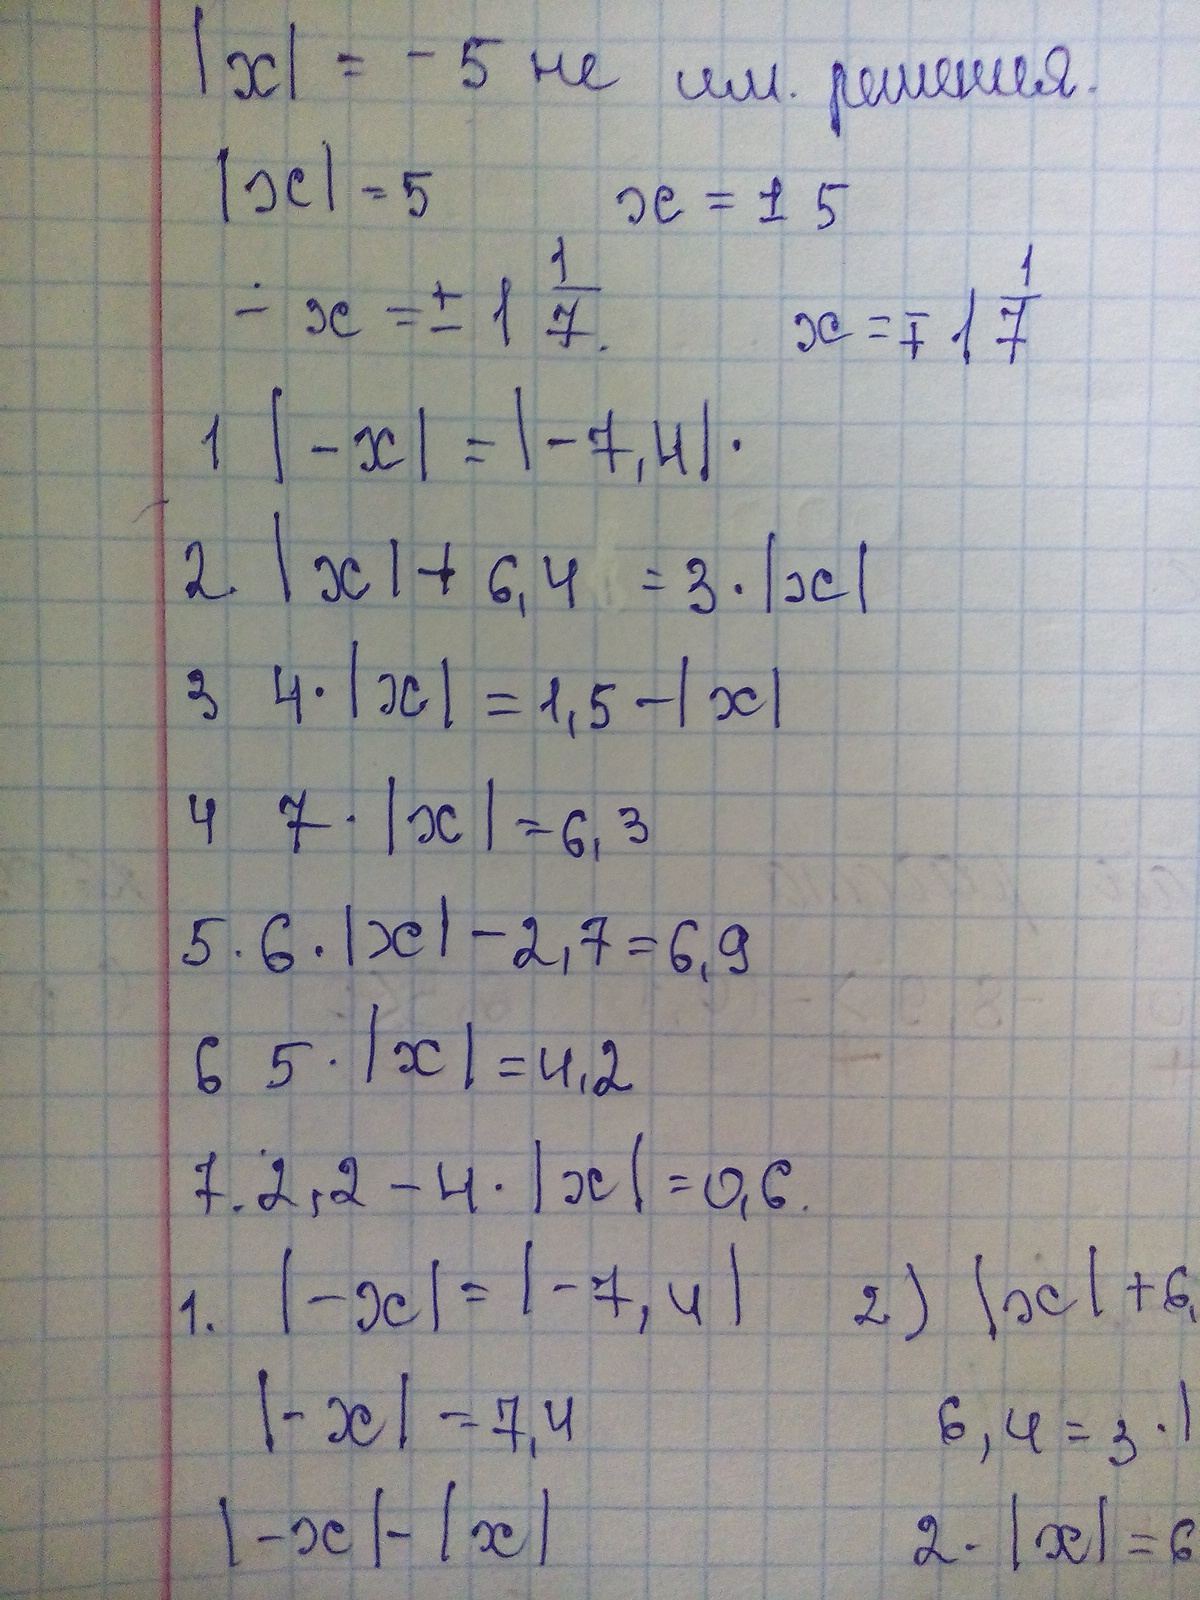 |x| = -5 не им. решения.
|x| = 5 x = ± 5
- x = ± 1 1/7. x = ∓ 1 1/7
1 |-x| = |-7,4|.
2. |x| + 6,4 = 3 · |x|
3 4 · |x| = 1,5 - |x|
4 7 · |x| = 6,3
5. 6 · |x| - 2,7 = 6,9
6 5 · |x| = 4,2
7. 2,2 - 4 · |x| = 0,6.
1. |-x| = |-7,4| 2) |x| + 6,
|-x| = 7,4 6,4 = 3 · |
|-x| - |x| 2 · |x| = 6